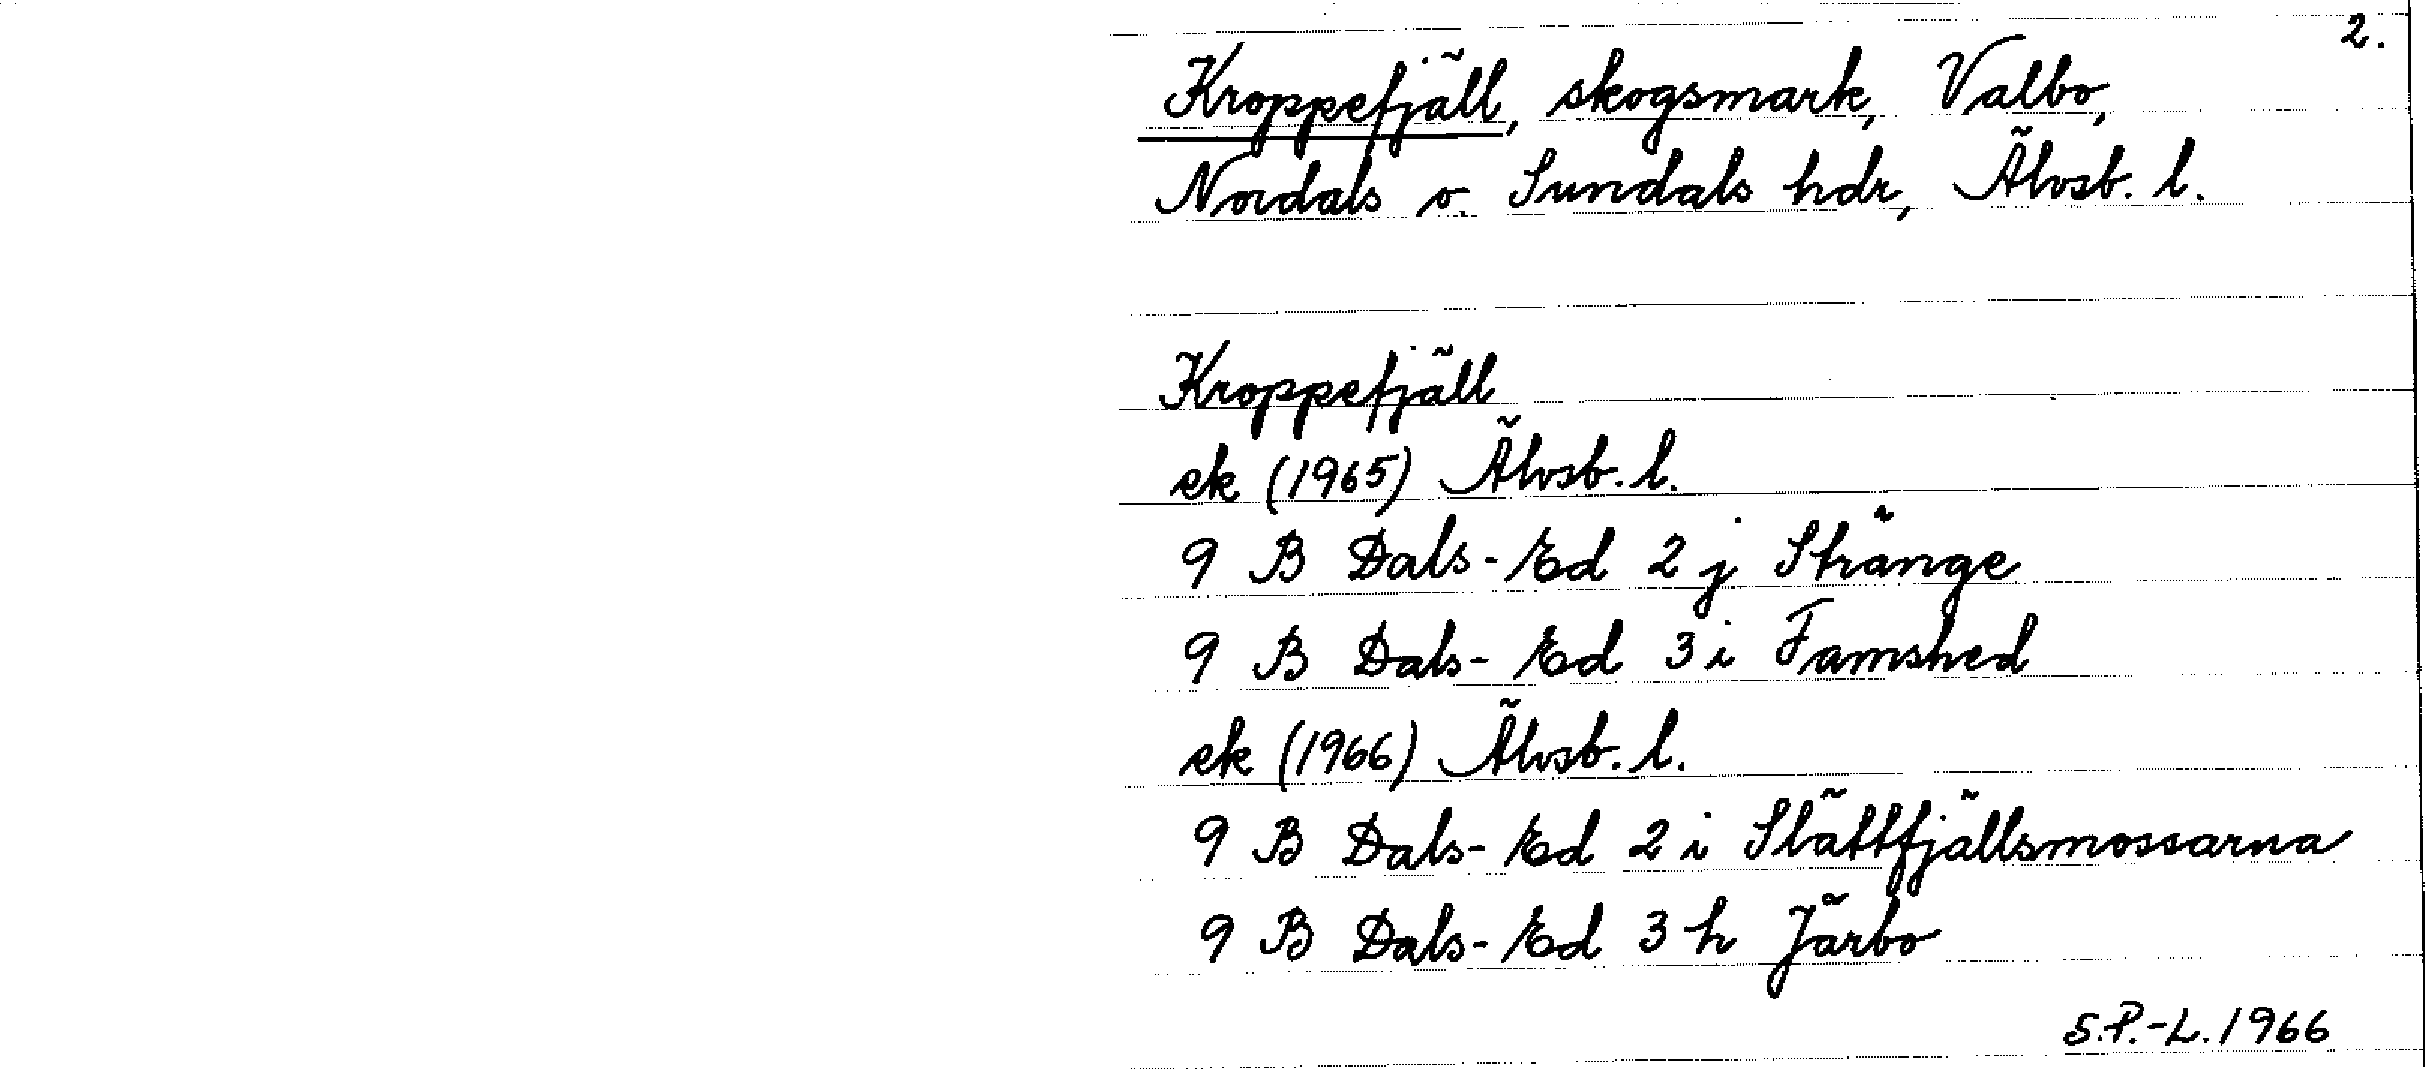 2.
Kroppefjäll, skogsmark, Valbo,
Nordals o. Sundals hdr, Älvsb. l.
Kroppefjäll
ek (1965) Älvsb. l.
9 B Dals-Ed 2 j Stränge
9 B Dals-Ed 3 i Famshed
ek (1966) Älvsb. l.
9 B Dals-Ed 2 i Slättfjällsmossarna
9 B Dals-Ed 3 h Järbo
S.P.-L. 1966